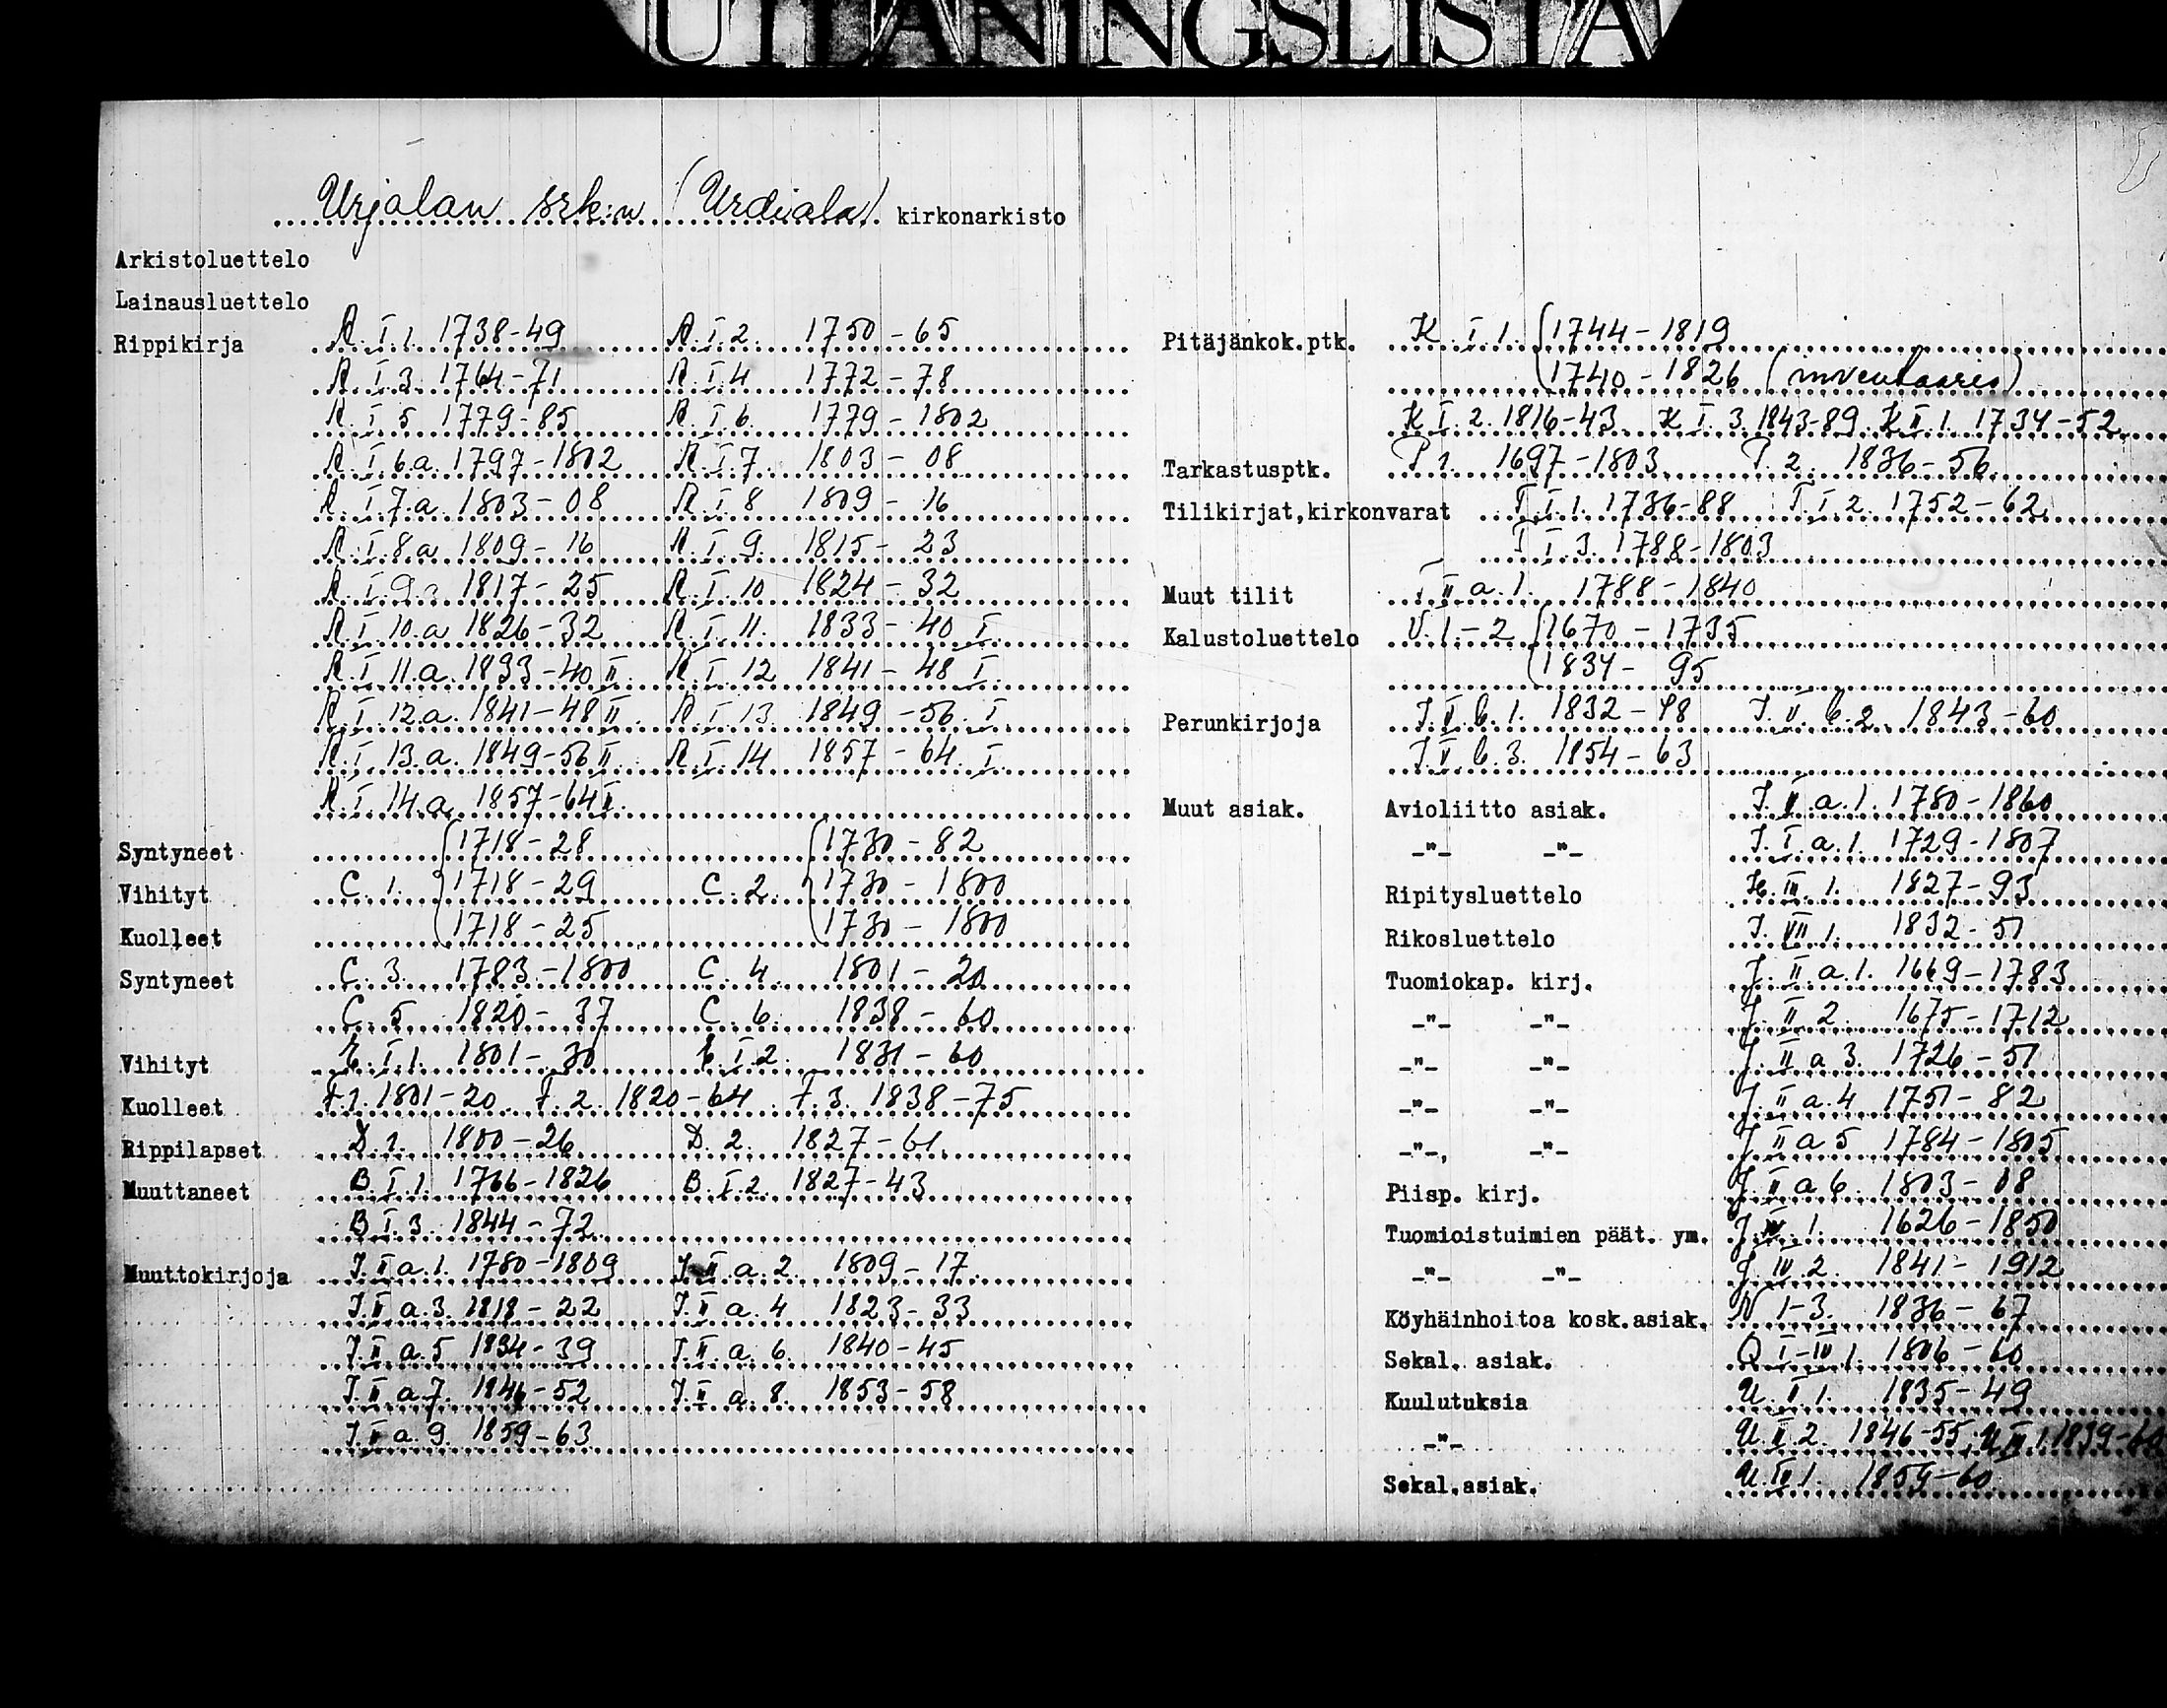 UTLÅNINGSLISTA
Urjalan srk:n (Urdiala) kirkonarkisto
Arkistoluettelo
Lainausluettelo
Rippikirja R. I. 1. 1738-49 R. I. 2. 1750-65
R. I. 3. 1764-71 R. I. 4 1772-78
R. I. 5 1779-85 R. I. 6. 1779-1802
R. I. 6.a. 1797-1802 R. I. 7. 1803-08
R. I. 7.a. 1803-08 R. I. 8 1809-16
R. I. 8.a 1809-16 R. I. 9. 1815-23
R. I. 9.a 1817-25 R. I. 10 1824-32
R. I. 10.a 1826-32 R. I. 11. 1833-40 I.
R. I. 11.a. 1833-40 II. R. I. 12 1841-48 I.
R. I. 12.a. 1841-48 II. R. I. 13. 1849-56. I.
R. I. 13.a. 1849-56 II. R. I. 14 1857-64. I.
R. I. 14.a. 1857-64 II.
Syntyneet 1718-28 1730-82
Vihityt C. 1. 1718-29 C. 2. 1730-1800
Kuolleet 1718-25 1730-1800
Syntyneet C. 3. 1783-1800 C. 4. 1801-20
C. 5 1820-37 C. 6. 1838-60
Vihityt E. I. 1. 1801-30 E. I. 2. 1831-60
Kuolleet F. 1. 1801-20 F. 2. 1820-64 F. 3. 1838-75
Rippilapset D. 1. 1800-26 D. 2. 1827-61.
Muuttaneet B. I. 1. 1766-1826 B. I. 2. 1827-43
B. I. 3. 1844-72.
Muuttokirjoja I. II a. 1. 1780-1809 I. II. a. 2. 1809-17.
I. II a. 3. 1818-22 I. II a. 4 1823-33
I. II a. 5 1834-39 I. II. a. 6. 1840-45
I. II a. 7. 1846-52 I. II a. 8. 1853-58
I. II a. 9. 1859-63
Pitäjänkok.ptk. K. I. 1. 1744-1819
1740-1826 (inventaario)
K I. 2. 1816-43. K I. 3. 1843-89. K II. 1. 1734-52
Tarkastusptk. P 1. 1697-1803. P. 2. 1836-56.
Tilikirjat,kirkonvarat T. I. 1. 1736-88 T. I. 2. 1752-62.
T I. 3. 1788-1803
Muut tilit T II a. 1. 1788-1840
Kalustoluettelo U. 1-2 1670-1735
1834-95
Perunkirjoja I. V. b. 1. 1832-48 I. V. b. 2. 1843-60
I. V. b. 3. 1854-63
Muut asiak. Avioliitto asiak. I. V. a. 1. 1780-1860
-"- -"- I. I. a. 1. 1729-1807
Ripitysluettelo H. III. 1. 1827-93
Rikosluettelo I. VII 1. 1832-51
Tuomiokap. kirj. J. II a. 1. 1669-1783
-"- -"- J. II 2. 1675-1712
-"- -"- J. II a 3. 1726-51
-"- -"- J. II a. 4 1751-82
-"-, -"- J. II a 5 1784-1805
Piisp. kirj. J. II a 6. 1803-08
Tuomioistuimien päät. ym. J. IV. 1. 1626-1850
-"- -"- J. IV. 2. 1841-1912
Köyhäinhoitoa kosk.asiak. N 1-3. 1836-67
Sekal. asiak. Q I-IV 1. 1806-60
Kuulutuksia U. II 1. 1835-49
-"- U. II. 2. 1846-55, U III 1. 1839-60
Sekal.asiak. U. IV 1. 1854-60.